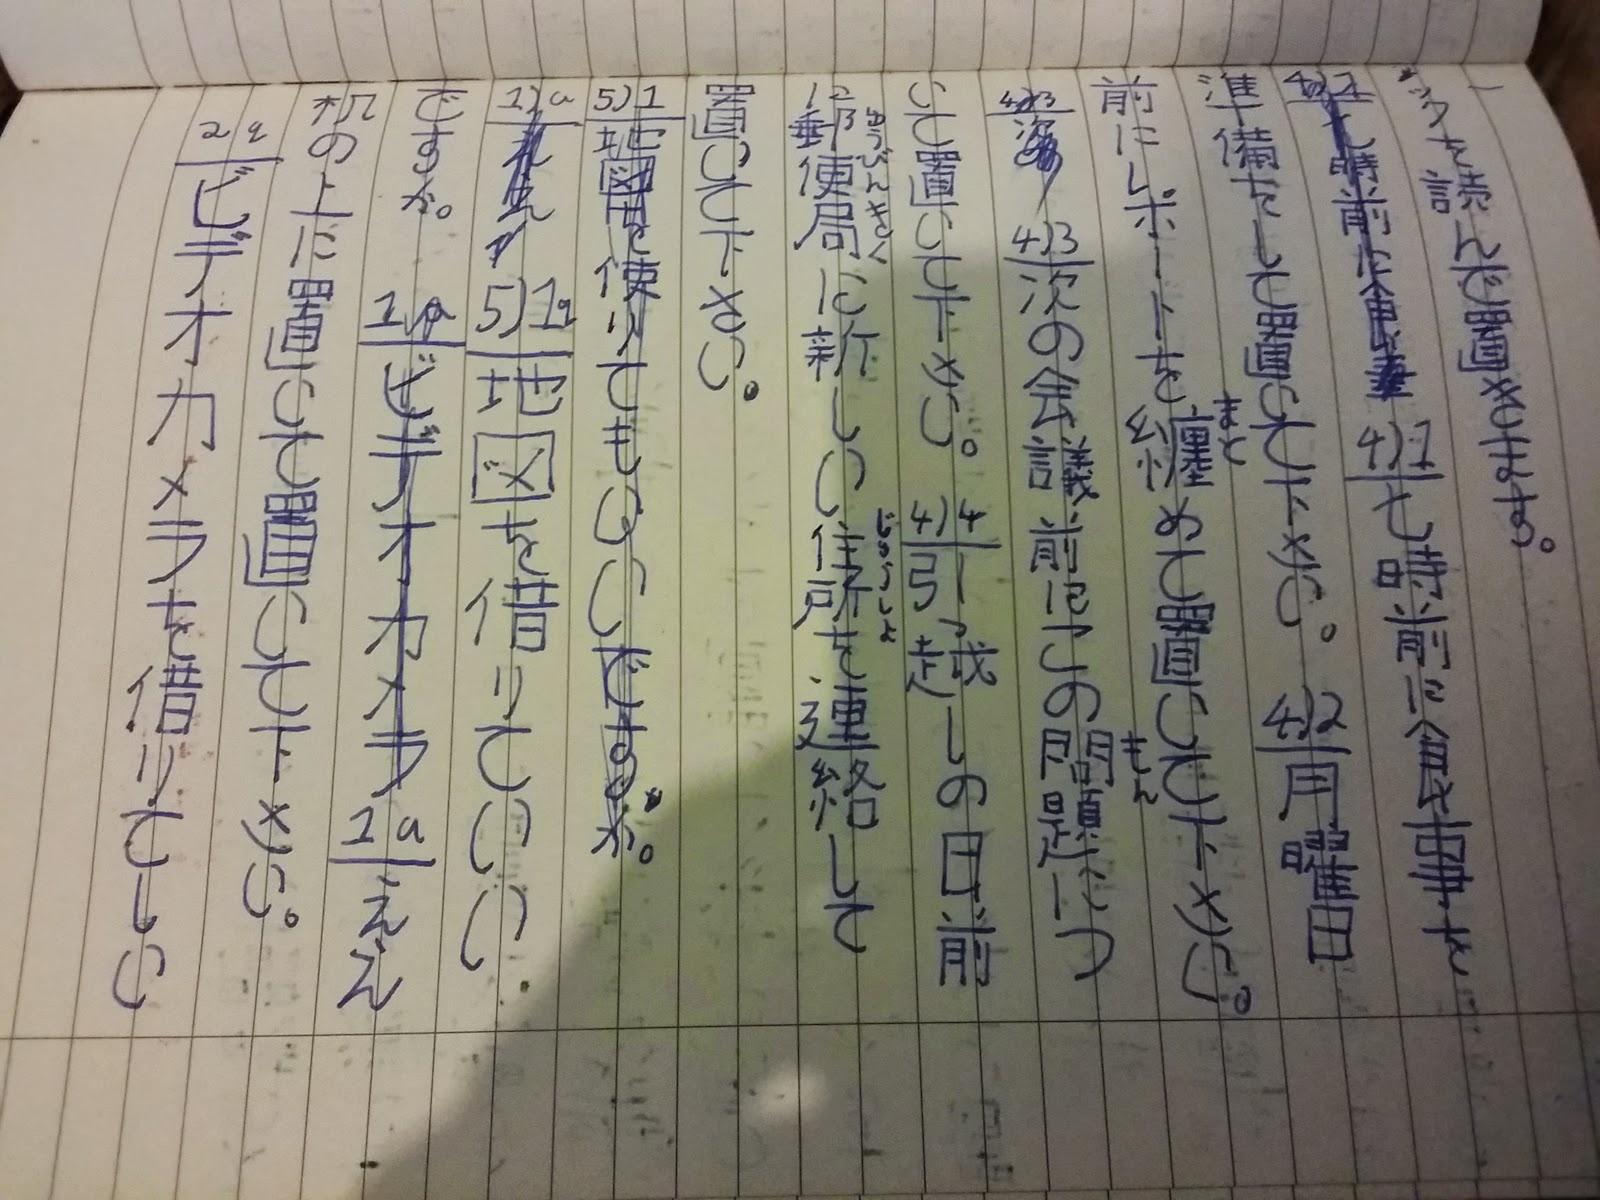 ックを読んで置きます。
4)1七時前に食事 4)1七時前に食事を
準備をして置いて下さい。 4)2月曜日
前にレポートを纏めて置いて下さい。
4)3次 4)3次の会議前にこの問題につ
いて置いて下さい。 4)4引っ越しの日前
に郵便局に新しい住所を連絡して
置いて下さい。
5)1地図を使ってもいいですか。
1)a 5)1a地図を借りていい
ですか。 1aビデオカメラ 1aええ
机の上に置いて置いて下さい。
2qビデオカメラを借りてもい